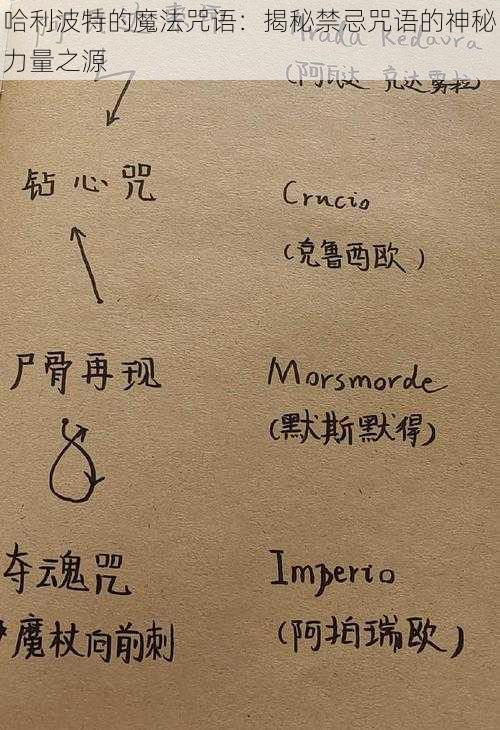 哈利波特的魔法咒语：揭秘禁忌咒语的神秘
力量之源
Kedavra
(阿瓦达 克达雾拉)
钻心咒 Crucio
(克鲁西欧)
尸骨再现 Morsmorde
(默斯默得)
夺魂咒 Imperio
魔杖向前刺 (阿拍瑞欧)